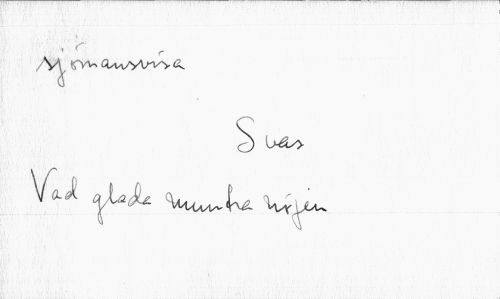 sjömansvisa
Svas
Vad glada muntra nöjen